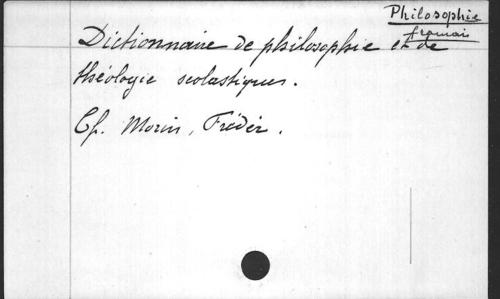 Philosophie
français
Dictionnaire de philosophie et de
théologie scolastiques.
Cf. Morin, Frédér.